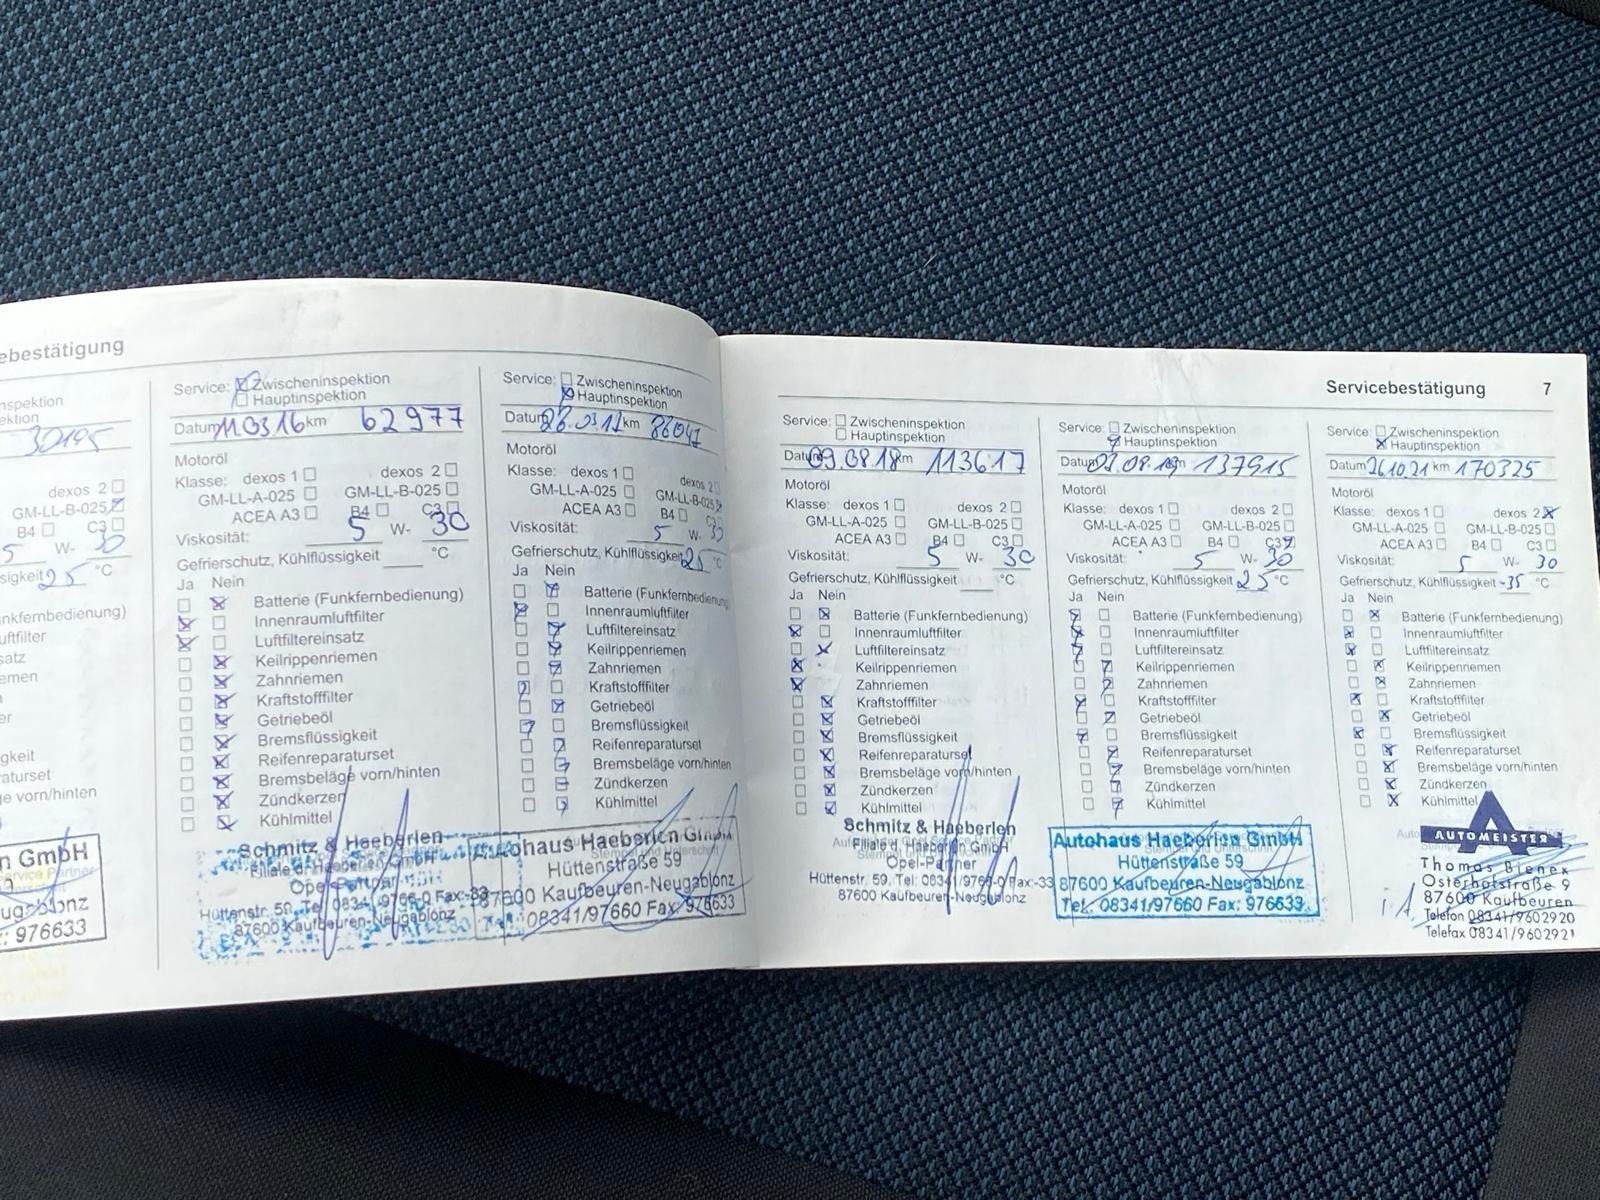 ebestätigung
nspektion
ektion
30195
dexos 2
GM-LL-B-025
B4 C3
5 W- 30
sigkeit 25 °C
nkfernbedienung)
uftfilter
satz
emen
n
er
gkeit
araturset
ge vorn/hinten
n GmbH
: 976633
Service: Zwischeninspektion
Hauptinspektion
Datum 11.03.16 km 62977
Motoröl
Klasse: dexos 1 dexos 2
GM-LL-A-025 GM-LL-B-025
ACEA A3 B4 C3
Viskosität: 5 W- 30
Gefrierschutz, Kühlflüssigkeit °C
Ja Nein
Batterie (Funkfernbedienung)
Innenraumluftfilter
Luftfiltereinsatz
Keilrippenriemen
Zahnriemen
Kraftstofffilter
Getriebeöl
Bremsflüssigkeit
Reifenreparaturset
Bremsbeläge vorn/hinten
Zündkerzen
Kühlmittel
Schmitz & Haeberlen
Filiale d. Haeberlen GmbH
Opel-Partner
Hüttenstr. 59, Tel. 08341/9766-0 Fax:-33
87600 Kaufbeuren-Neugablonz
Service: Zwischeninspektion
Hauptinspektion
Datum 03.17 km 86041
Motoröl
Klasse: dexos 1 dexos 2
GM-LL-A-025 GM-LL-B-025
ACEA A3 B4 C3
Viskosität: 5 W- 30
Gefrierschutz, Kühlflüssigkeit 25 °C
Ja Nein
Batterie (Funkfernbedienung)
Innenraumluftfilter
Luftfiltereinsatz
Keilrippenriemen
Zahnriemen
Kraftstofffilter
Getriebeöl
Bremsflüssigkeit
Reifenreparaturset
Bremsbeläge vorn/hinten
Zündkerzen
Kühlmittel
Autohaus Haeberlen GmbH
Hüttenstraße 59
87600 Kaufbeuren-Neugablonz
08341/97660 Fax: 976633
Servicebestätigung 7
Service: Zwischeninspektion
Hauptinspektion
Datum 09.08.18 km 113617
Motoröl
Klasse: dexos 1 dexos 2
GM-LL-A-025 GM-LL-B-025
ACEA A3 B4 C3
Viskosität: 5 W- 30
Gefrierschutz, Kühlflüssigkeit °C
Ja Nein
Batterie (Funkfernbedienung)
Innenraumluftfilter
Luftfiltereinsatz
Keilrippenriemen
Zahnriemen
Kraftstofffilter
Getriebeöl
Bremsflüssigkeit
Reifenreparaturset
Bremsbeläge vorn/hinten
Zündkerzen
Kühlmittel
Schmitz & Haeberlen
Filiale d. Haeberlen GmbH
Opel-Partner
Hüttenstr. 59, Tel: 08341/9766-0 Fax:-33
87600 Kaufbeuren-Neugablonz
Service: Zwischeninspektion
Hauptinspektion
Datum 08.19 km 137915
Motoröl
Klasse: dexos 1 dexos 2
GM-LL-A-025 GM-LL-B-025
ACEA A3 B4 C3
Viskosität: 5 W- 30
Gefrierschutz, Kühlflüssigkeit 25 °C
Ja Nein
Batterie (Funkfernbedienung)
Innenraumluftfilter
Luftfiltereinsatz
Keilrippenriemen
Zahnriemen
Kraftstofffilter
Getriebeöl
Bremsflüssigkeit
Reifenreparaturset
Bremsbeläge vorn/hinten
Zündkerzen
Kühlmittel
Autohaus Haeberlen GmbH
Hüttenstraße 59
87600 Kaufbeuren-Neugablonz
Tel.: 08341/97660 Fax: 976633
Service: Zwischeninspektion
Hauptinspektion
Datum 26.10.21 km 170325
Motoröl
Klasse: dexos 1 dexos 2
GM-LL-A-025 GM-LL-B-025
ACEA A3 B4 C3
Viskosität: 5 W- 30
Gefrierschutz, Kühlflüssigkeit -35 °C
Ja Nein
Batterie (Funkfernbedienung)
Innenraumluftfilter
Luftfiltereinsatz
Keilrippenriemen
Zahnriemen
Kraftstofffilter
Getriebeöl
Bremsflüssigkeit
Reifenreparaturset
Bremsbeläge vorn/hinten
Zündkerzen
Kühlmittel
AUTOMEISTER
Thomas Bienek
Osterhofstraße 9
87600 Kaufbeuren
Telefon 08341/9602920
Telefax 08341/9602921